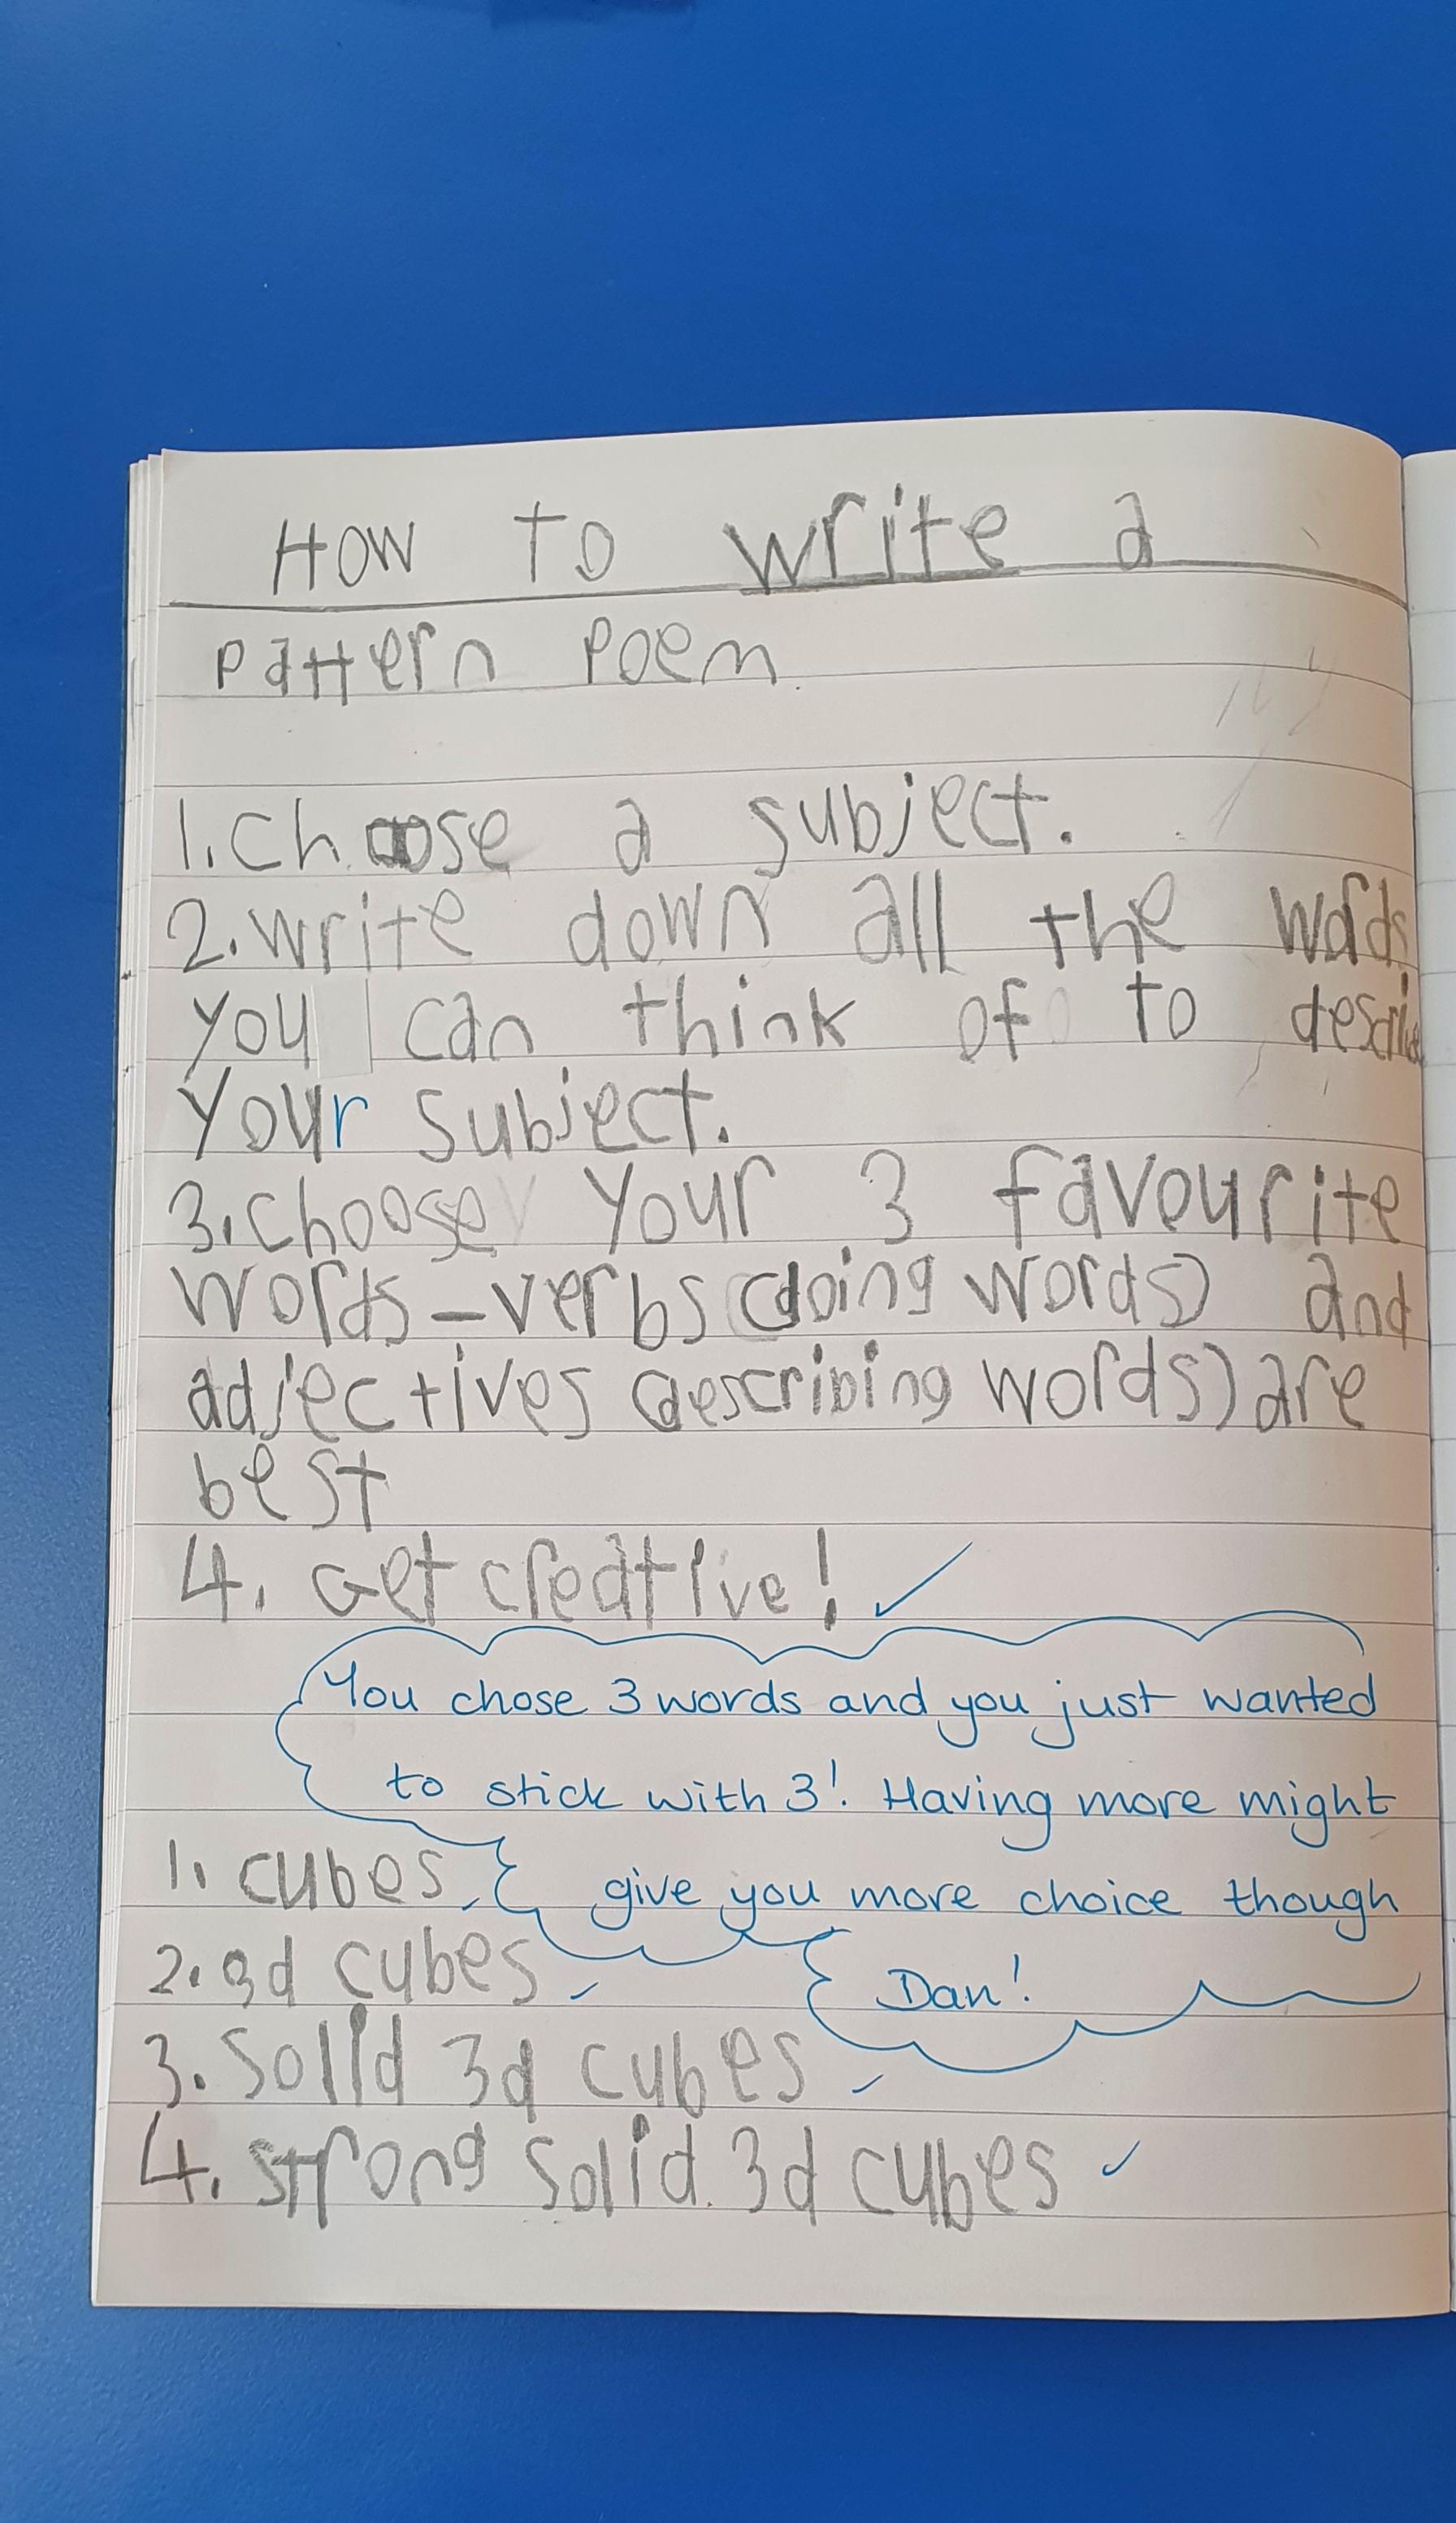 How to write a
pattern poem.
1. choose a subject.
2. write down all the words
you can think of to describe
your subject.
3. choose your 3 favourite
words - verbs (doing words) and
adjectives (describing words) are
best
4. Get creative!
You chose 3 words and you just wanted
to stick with 3! Having more might
give you more choice though
Dan!
1. cubes
2. 3d cubes
3. solid 3d cubes
4. strong solid 3d cubes